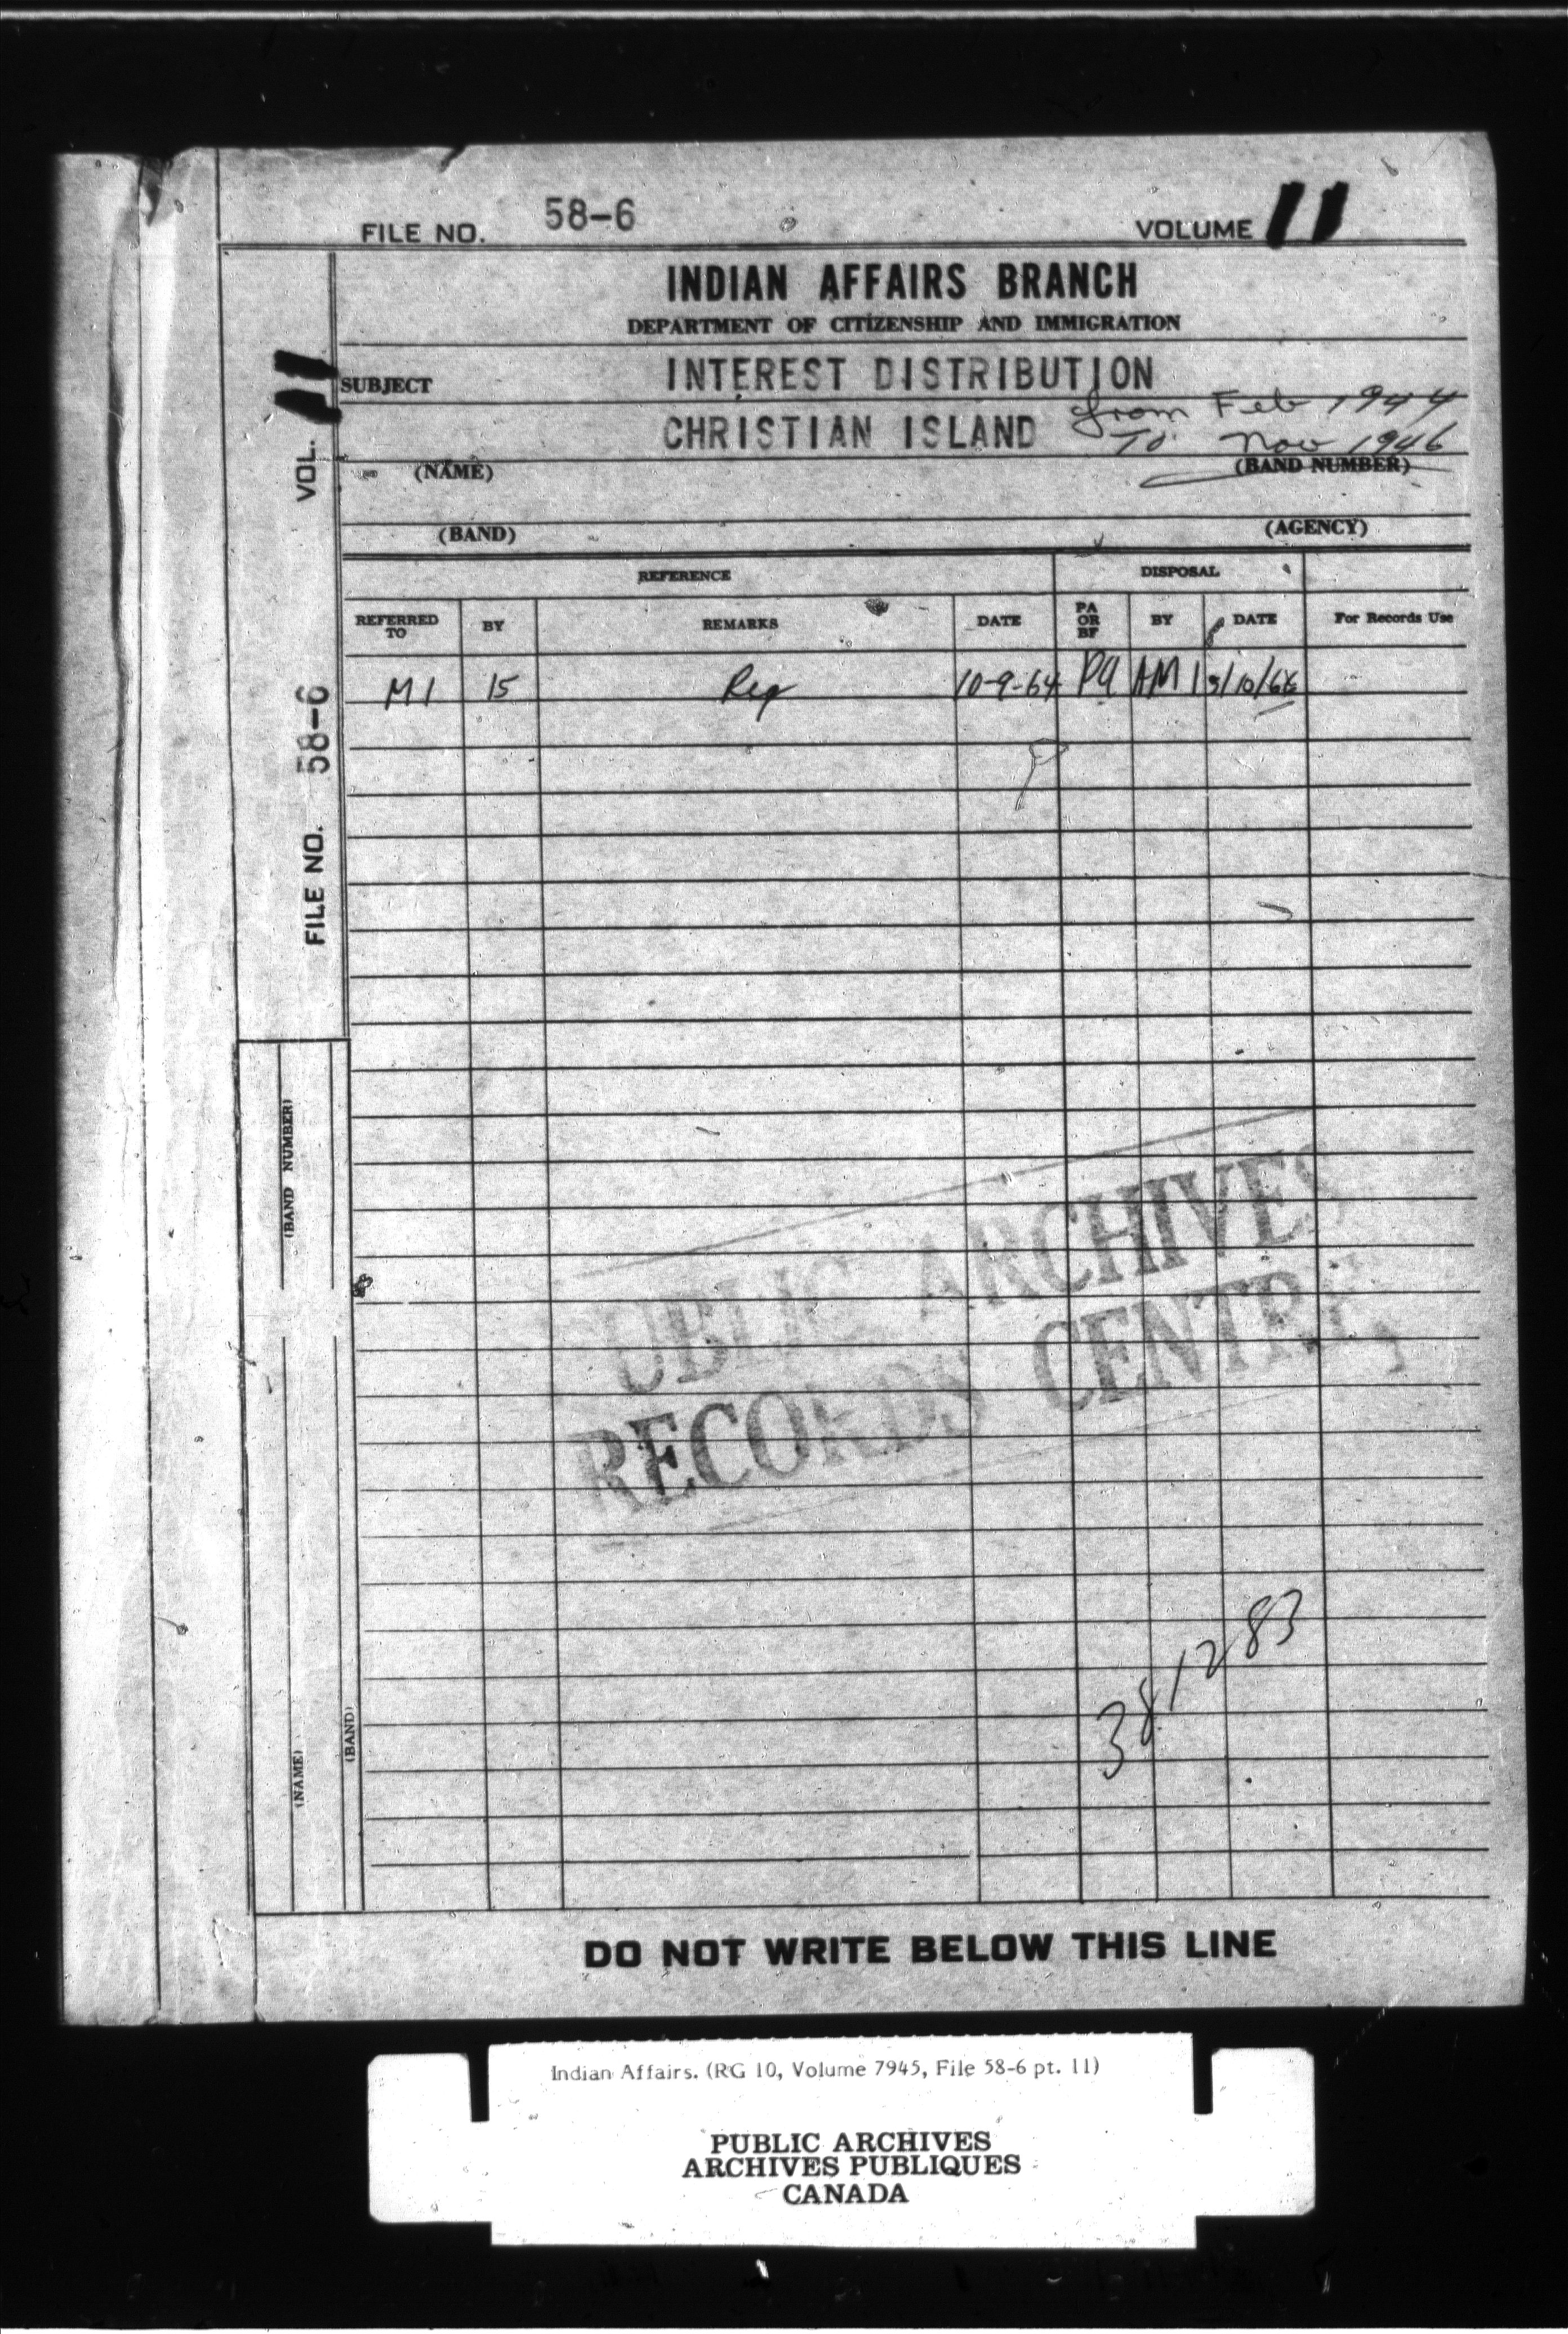 FILE NO. 58-6 VOLUME 11
INDIAN AFFAIRS BRANCH
DEPARTMENT OF CITIZENSHIP AND IMMIGRATION
SUBJECT INTEREST DISTRIBUTION
CHRISTIAN ISLAND from Feb 1944
To Nov 1946
(NAME) (BAND NUMBER)
(BAND) (AGENCY)
REFERENCE DISPOSAL
REFERRED TO BY REMARKS DATE PA OR BF BY DATE For Records Use
M1 15 Req 10-9-64 PA AM
FILE NO. 58-6 VOL. 11
(BAND NUMBER)
(NAME)
(BAND)
PUBLIC ARCHIVES
RECORDS CENTRE
381283
DO NOT WRITE BELOW THIS LINE
Indian Affairs. (RG 10, Volume 7945, File 58-6 pt. 11)
PUBLIC ARCHIVES
ARCHIVES PUBLIQUES
CANADA